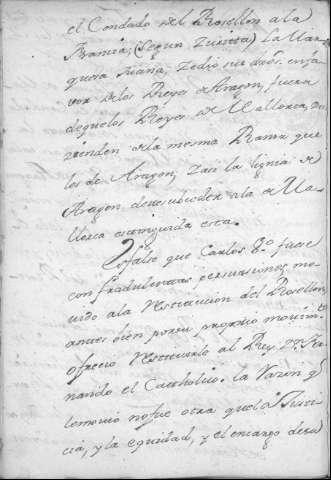 el Condado del Rosellon ala
Francia; (segun Zurita) La Mar
quesa Juana, Zedio sus dros. enfa
vor delos Reyes de Aragon, fuera
de quelos Reyes de Mallorca, de
zienden dela mesma Rama que
los de Aragon, y assi la linia de
Aragon deve subceder ala de Ma
llorca extinguida esta.
Es falso que Carlos 8.º fuese
con fraudulentas persuasiones mo
vido ala Restitucion del Rosellon,
antes bien por su proprio movim.to
ofrecio Restituirlo al Rey Dn. Fer
nando el Catholico. la Razon q
lemovio no fue otra quela Justi
cia, y la equidad, y el encargo de su